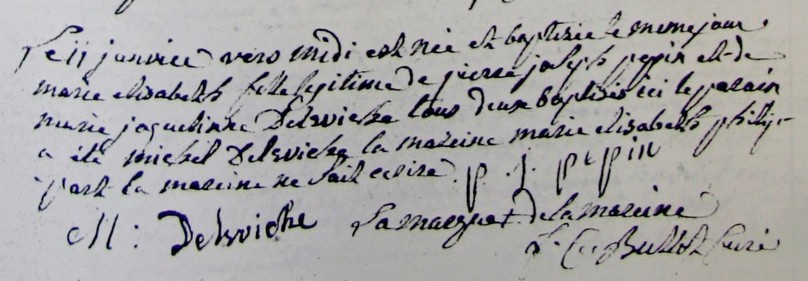 le 11 janvier vers midi est née et baptisée le meme jour
marie elisabeth fille legitime de pierre joseph pepin et de
marie jaquelinne Delwiche tous deux baptisés ici le parain
a été michel Delwiche la mareine marie elisabeth philip-
part la mareine ne sait ecrire. p. j. pepin
M : Delwiche la marque + de la mareine
Bullot Curé